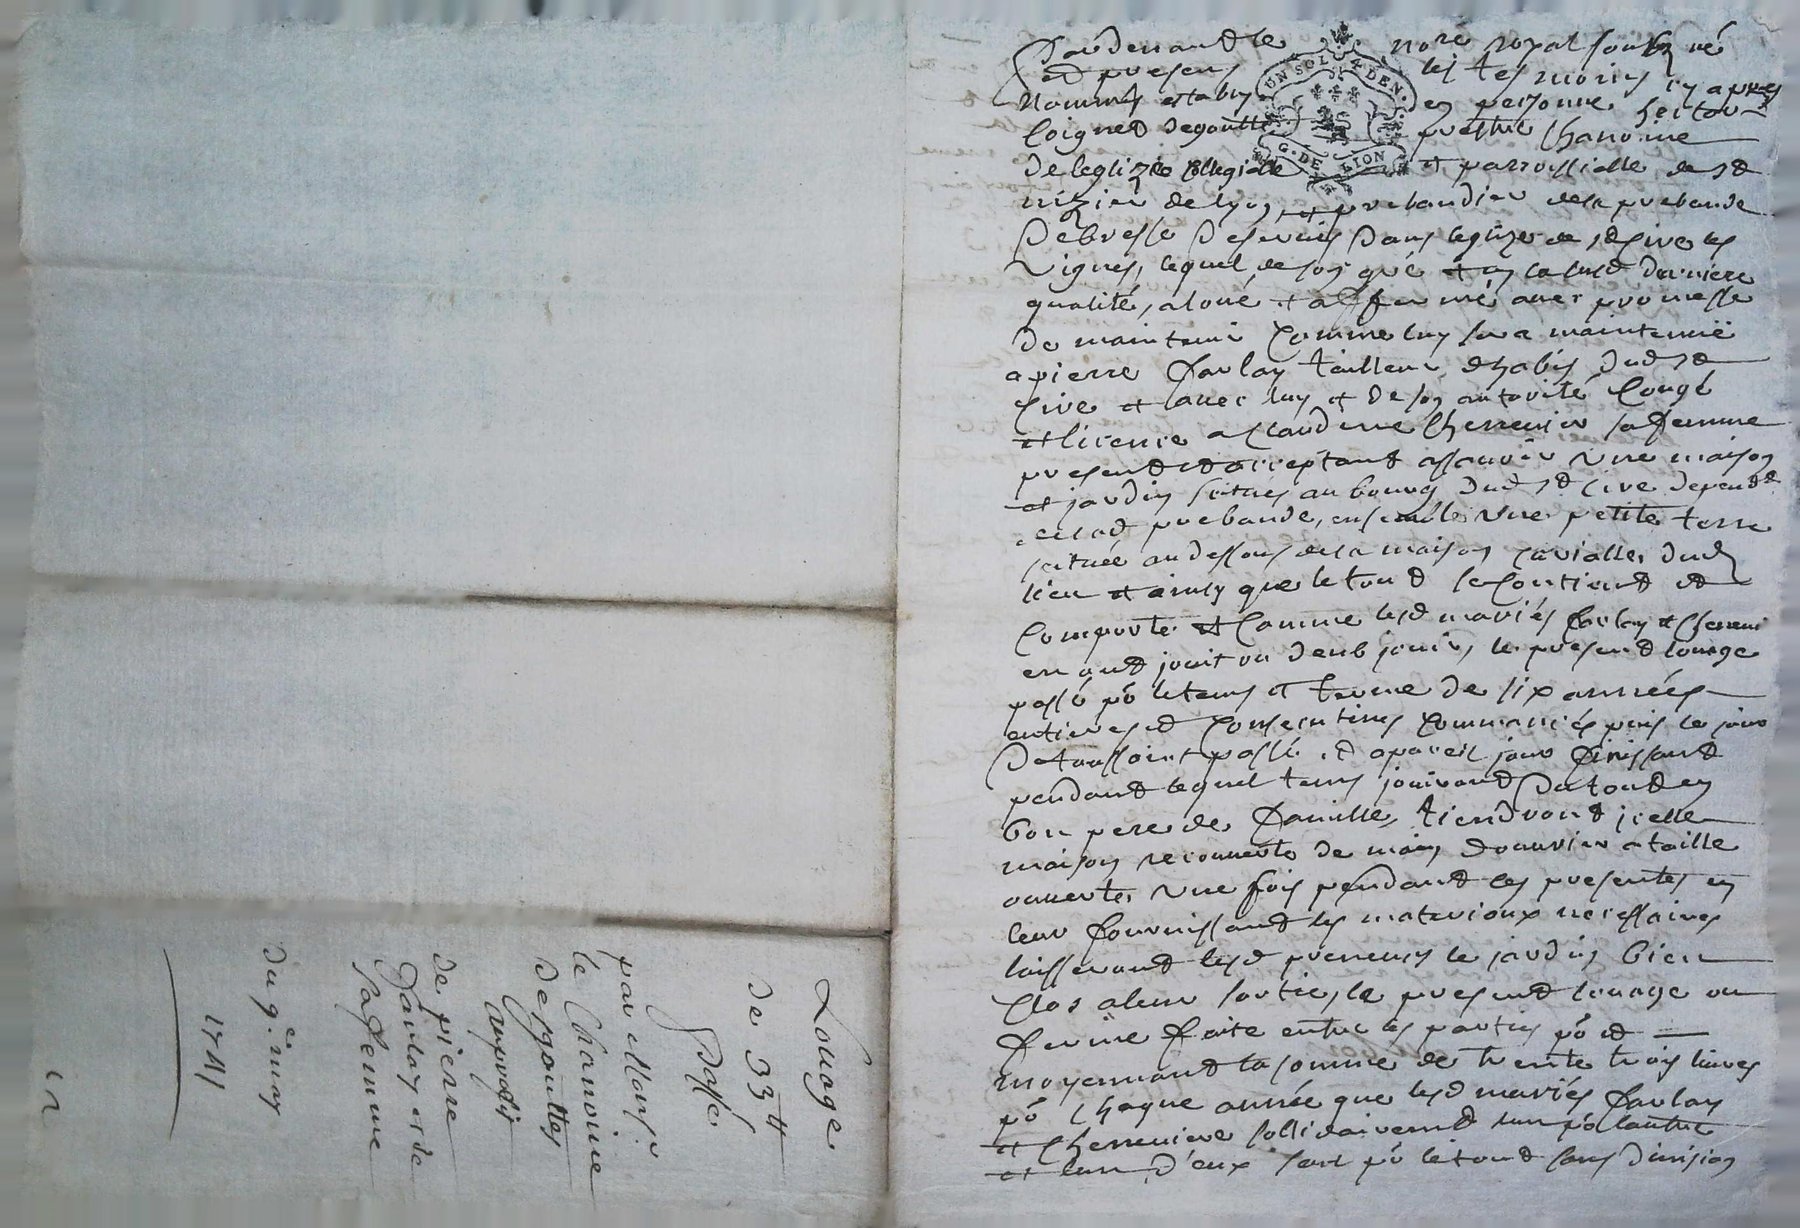 Pardevant le nore royal soubz né
et presens les tesmoins cy apres
nommés establi en personne hector
Coignet degoutte prestre Chanoine
de leglize collegialle et parroissialle de st
nizier de lyon, et prebandier de la prebande
De bresse Deservie Dans leglize de st Cire les
Vignes, lequel de son gré et en lad dernière
qualité, a loué et affermé avec promesse
de maintenir comme luy sera maintenüe
a pierre Paulay tailleur dhabis dud st
Cire et avec luy et de son autorité Congé
et licence a Claudine Chereviere sa femme
present et acceptant assavoir une maison
et jardin scitués au bourg dud st Cire depend
de lad prebande, ensemble une petite terre
scituée au dessous de la maison curialle dud
lieu et ainsy que le tout se Contient et
Comporte et Comme lesd mariés Paulay et
en ont jouit ou deub jouir, le present louage
passé po le tems et terme de six années
entieres et Consecutives Commancées puis le jour
De toussoint passé et a pareil jour finissant
pendant lequel tems jouiront Du tout en
bon pere de famille, tiendront jcelle
maison recouverte de main douvrier a taille
ouverte une fois pendant les presentes en
leur fournissant les materiaux necessaires
laisseront lesd preneurs le jardin bien
Clos a leur sortie, le present louage ou
ferme faite entre les parties po et
moyennant la somme de trente trois livres
po Chaque année que lesd mariés Paulay
et Chereviere sollidairement lun po lautre
et lun d'eux seul po le tout sans division
UN SOL 4 DEN.
G. DE LION
Louage
de 33 ₶
Passé
par Monsr
le Chanoine
degouttes
au profit
de pierre
Paulay et de
sa femme
du 9.e may
1741